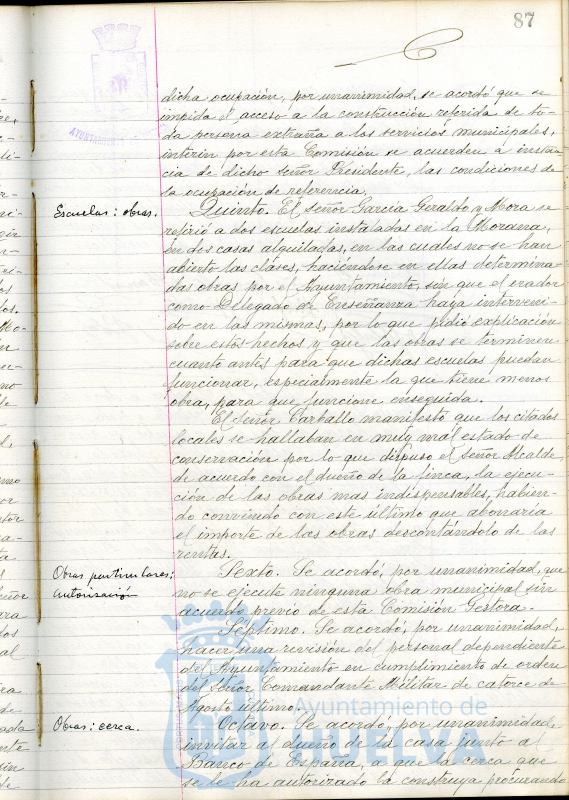 87
dicha ocupación, por unanimidad, se acordó que se
impida el acceso a la construcción referida de to-
da persona extraña a los servicios municipales,
interin por esta Comisión se acuerden a instan-
cia de dicho señor Presidente, las condiciones de
la ocupación de referencia.
Escuelas: obras.
Quinto. El señor García Geraldo y Mora se
refirió a dos escuelas instaladas en la Morana,
en dos casas alquiladas, en las cuales no se han
abierto las clases, haciéndose en ellas determina-
das obras por el Ayuntamiento, sin que el orador
como Delegado de Enseñanza haya interveni-
do en las mismas, por lo que pidió explicación
sobre estos hechos y que las obras se terminen
cuanto antes para que dichas escuelas puedan
funcionar, especialmente la que tiene menos
obra, para que funcione enseguida.
El señor Carballo manifestó que los citados
locales se hallaban en muy mal estado de
conservación por lo que dispuso el señor Alcalde,
de acuerdo con el dueño de la finca, la ejecu-
ción de las obras mas indispensables, habien-
do convenido con este último que abonaria
el importe de las obras descontándolo de las
rentas.
Obras particulares:
autorización
Sexto. Se acordó, por unanimidad, que
no se ejecute ninguna obra municipal sin
acuerdo previo de esta Comisión Gestora.
Séptimo. Se acordó, por unanimidad,
hacer una revisión del personal dependiente
del Ayuntamiento en cumplimiento de orden
del señor Comandante Militar de catorce de
Agosto último.
Obras: cerca.
Octavo. Se acordó, por unanimidad,
invitar al dueño de la casa junto al
Banco de España, a que la cerca que
se le ha autorizado la construya procurando
Ayuntamiento de
HUELVA